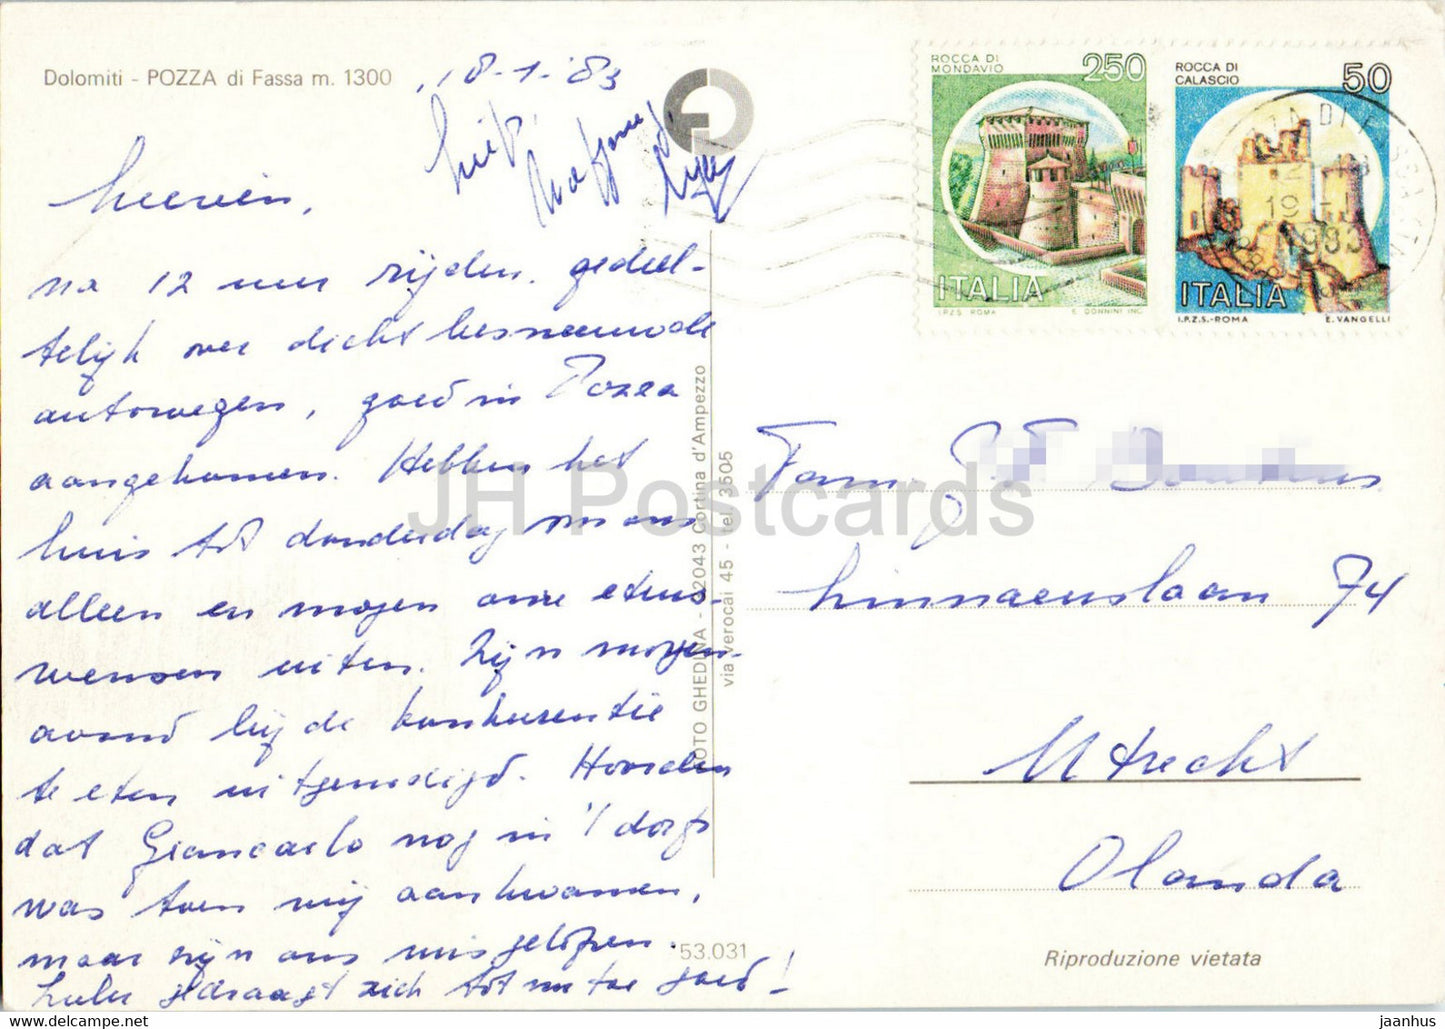 Dolomiti - POZZA di Fassa m. 1300
18-1-'83
heerein,
na 12 uur rijden, gedeel-
telijk over dicht besneeuwde
autowegen, goed in Pozza
aangekomen. Hebben het
huis tot donderdag voor ons
alleen en mogen onze etens-
wensen uiten. Zijn morgen-
avond bij de konkurrentie
te eten uitgenodigd. Hoorden
dat Giancarlo nog in 't dorp
was toen wij aankwamen,
maar zijn ons misgelopen.
gedraagt zich tot nu toe goed!
FOTO GHEDINA - 32043 Cortina d'Ampezzo
via Verocai 45 - tel 3505
53.031
ROCCA DI MONDAVIO
250
ITALIA
I.P.Z.S. ROMA E. DONNINI INC.
ROCCA DI CALASCIO
50
ITALIA
I.P.Z.S.-ROMA E. VANGELLI
19 1983
Fam.
Linnaeuslaan 74
Utrecht
Olanda
Riproduzione vietata
JH Postcards
jaanhus